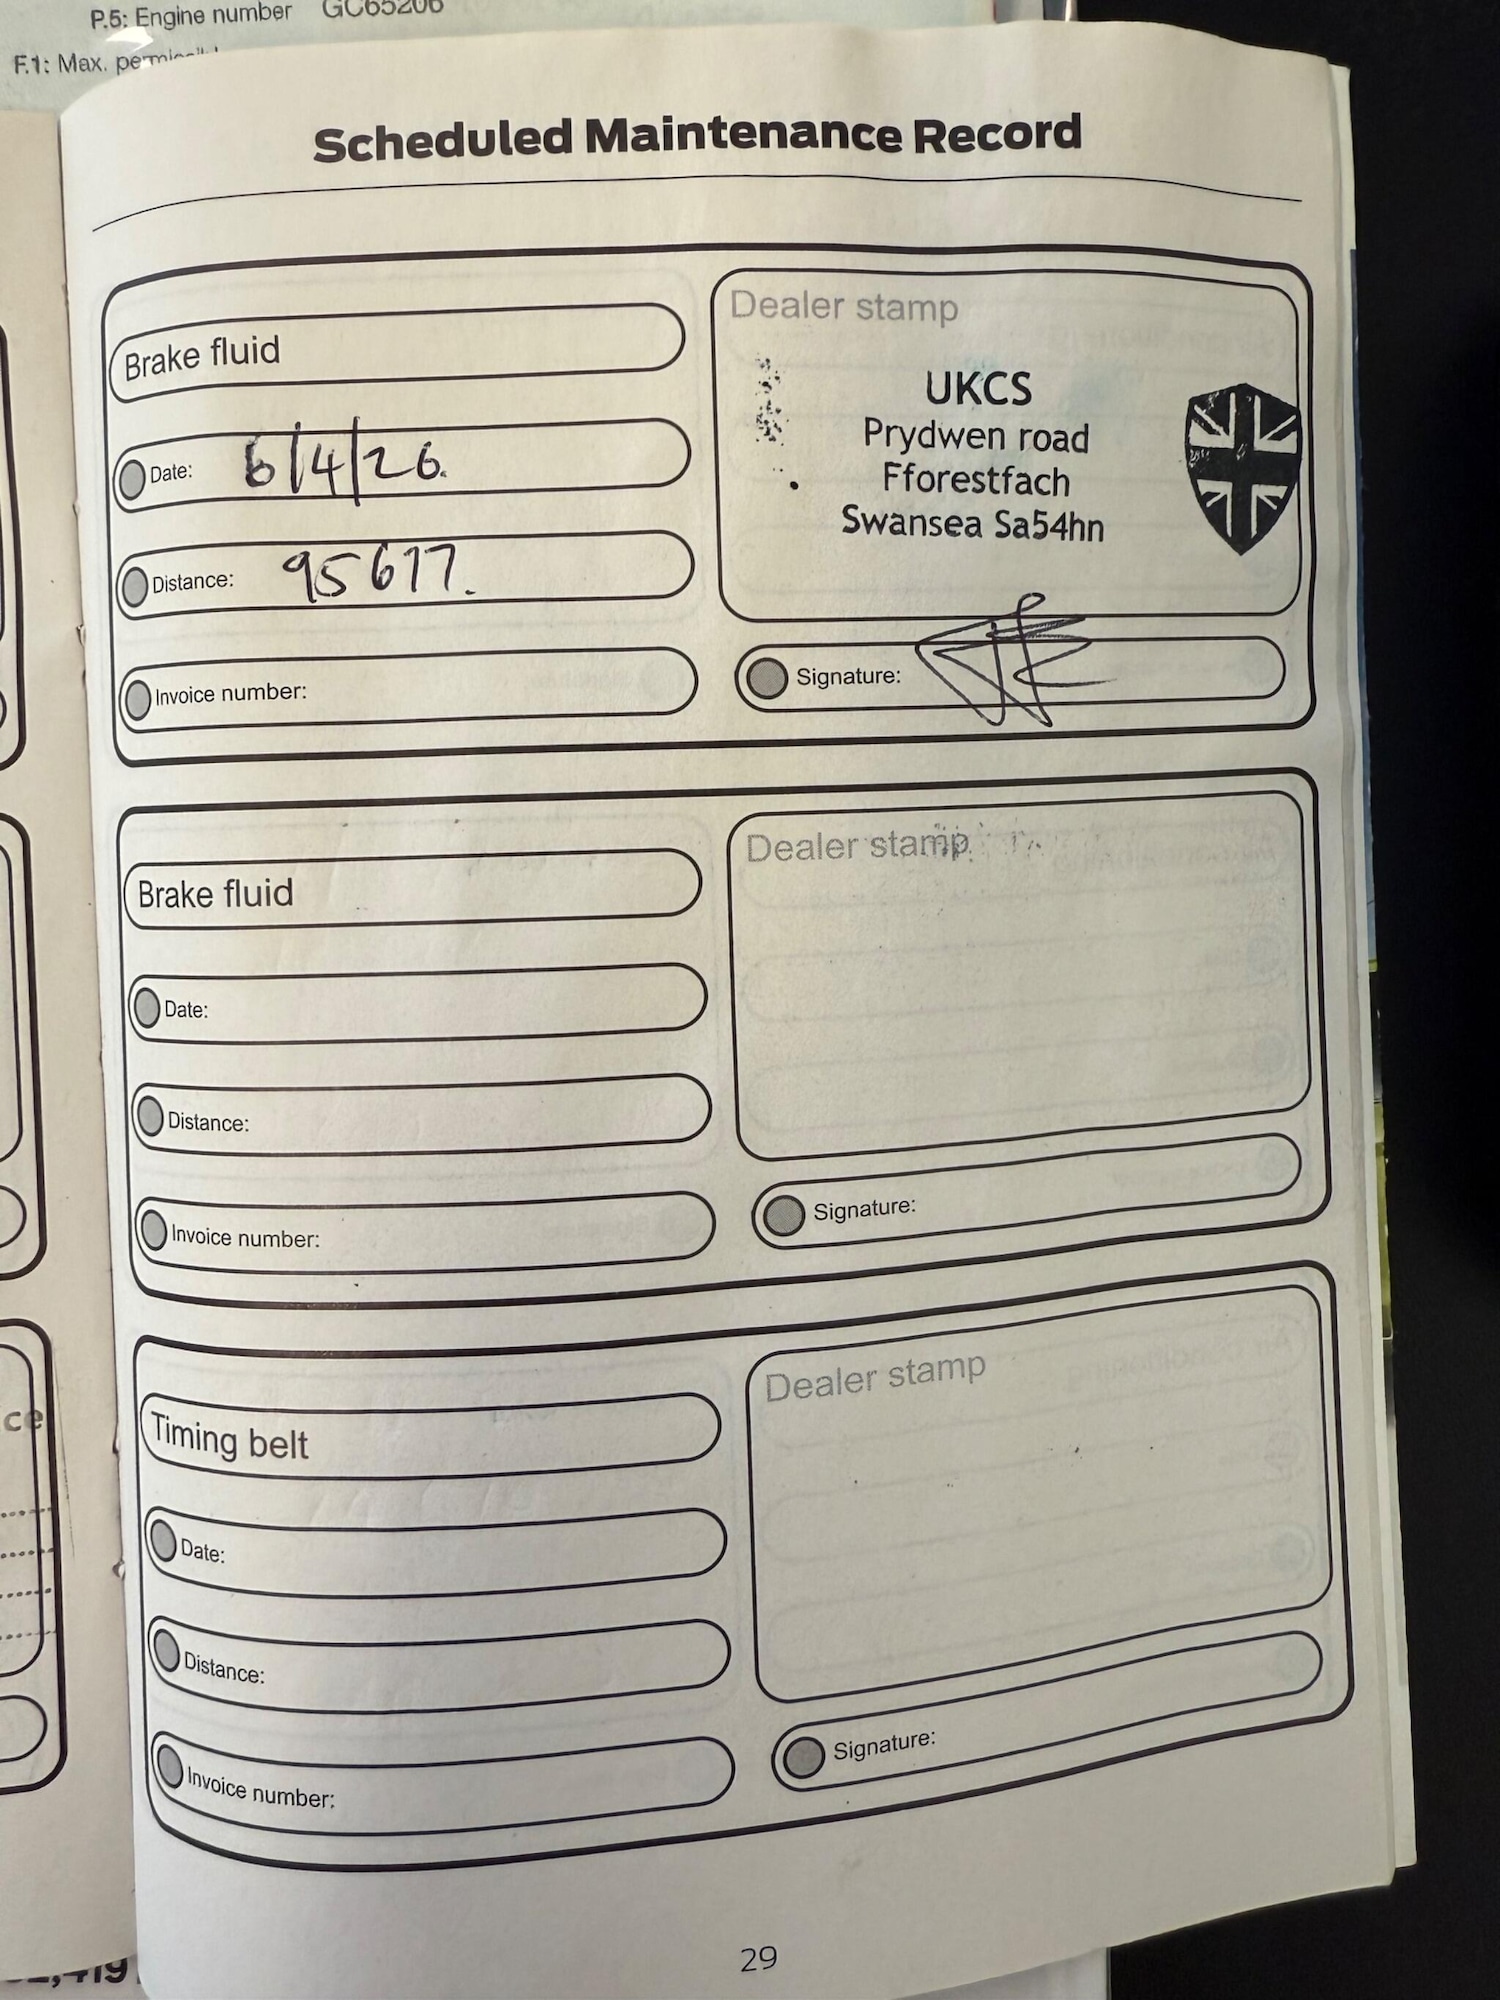 P.5: Engine number GC65206
F.1: Max.
Scheduled Maintenance Record
Brake fluid
Date: 6/4/26.
Distance: 95677.
Invoice number:
Dealer stamp
UKCS
Prydwen road
Fforestfach
Swansea Sa54hn
Signature:
Brake fluid
Date:
Distance:
Invoice number:
Dealer stamp
Signature:
Timing belt
Date:
Distance:
Invoice number:
Dealer stamp
Signature:
29